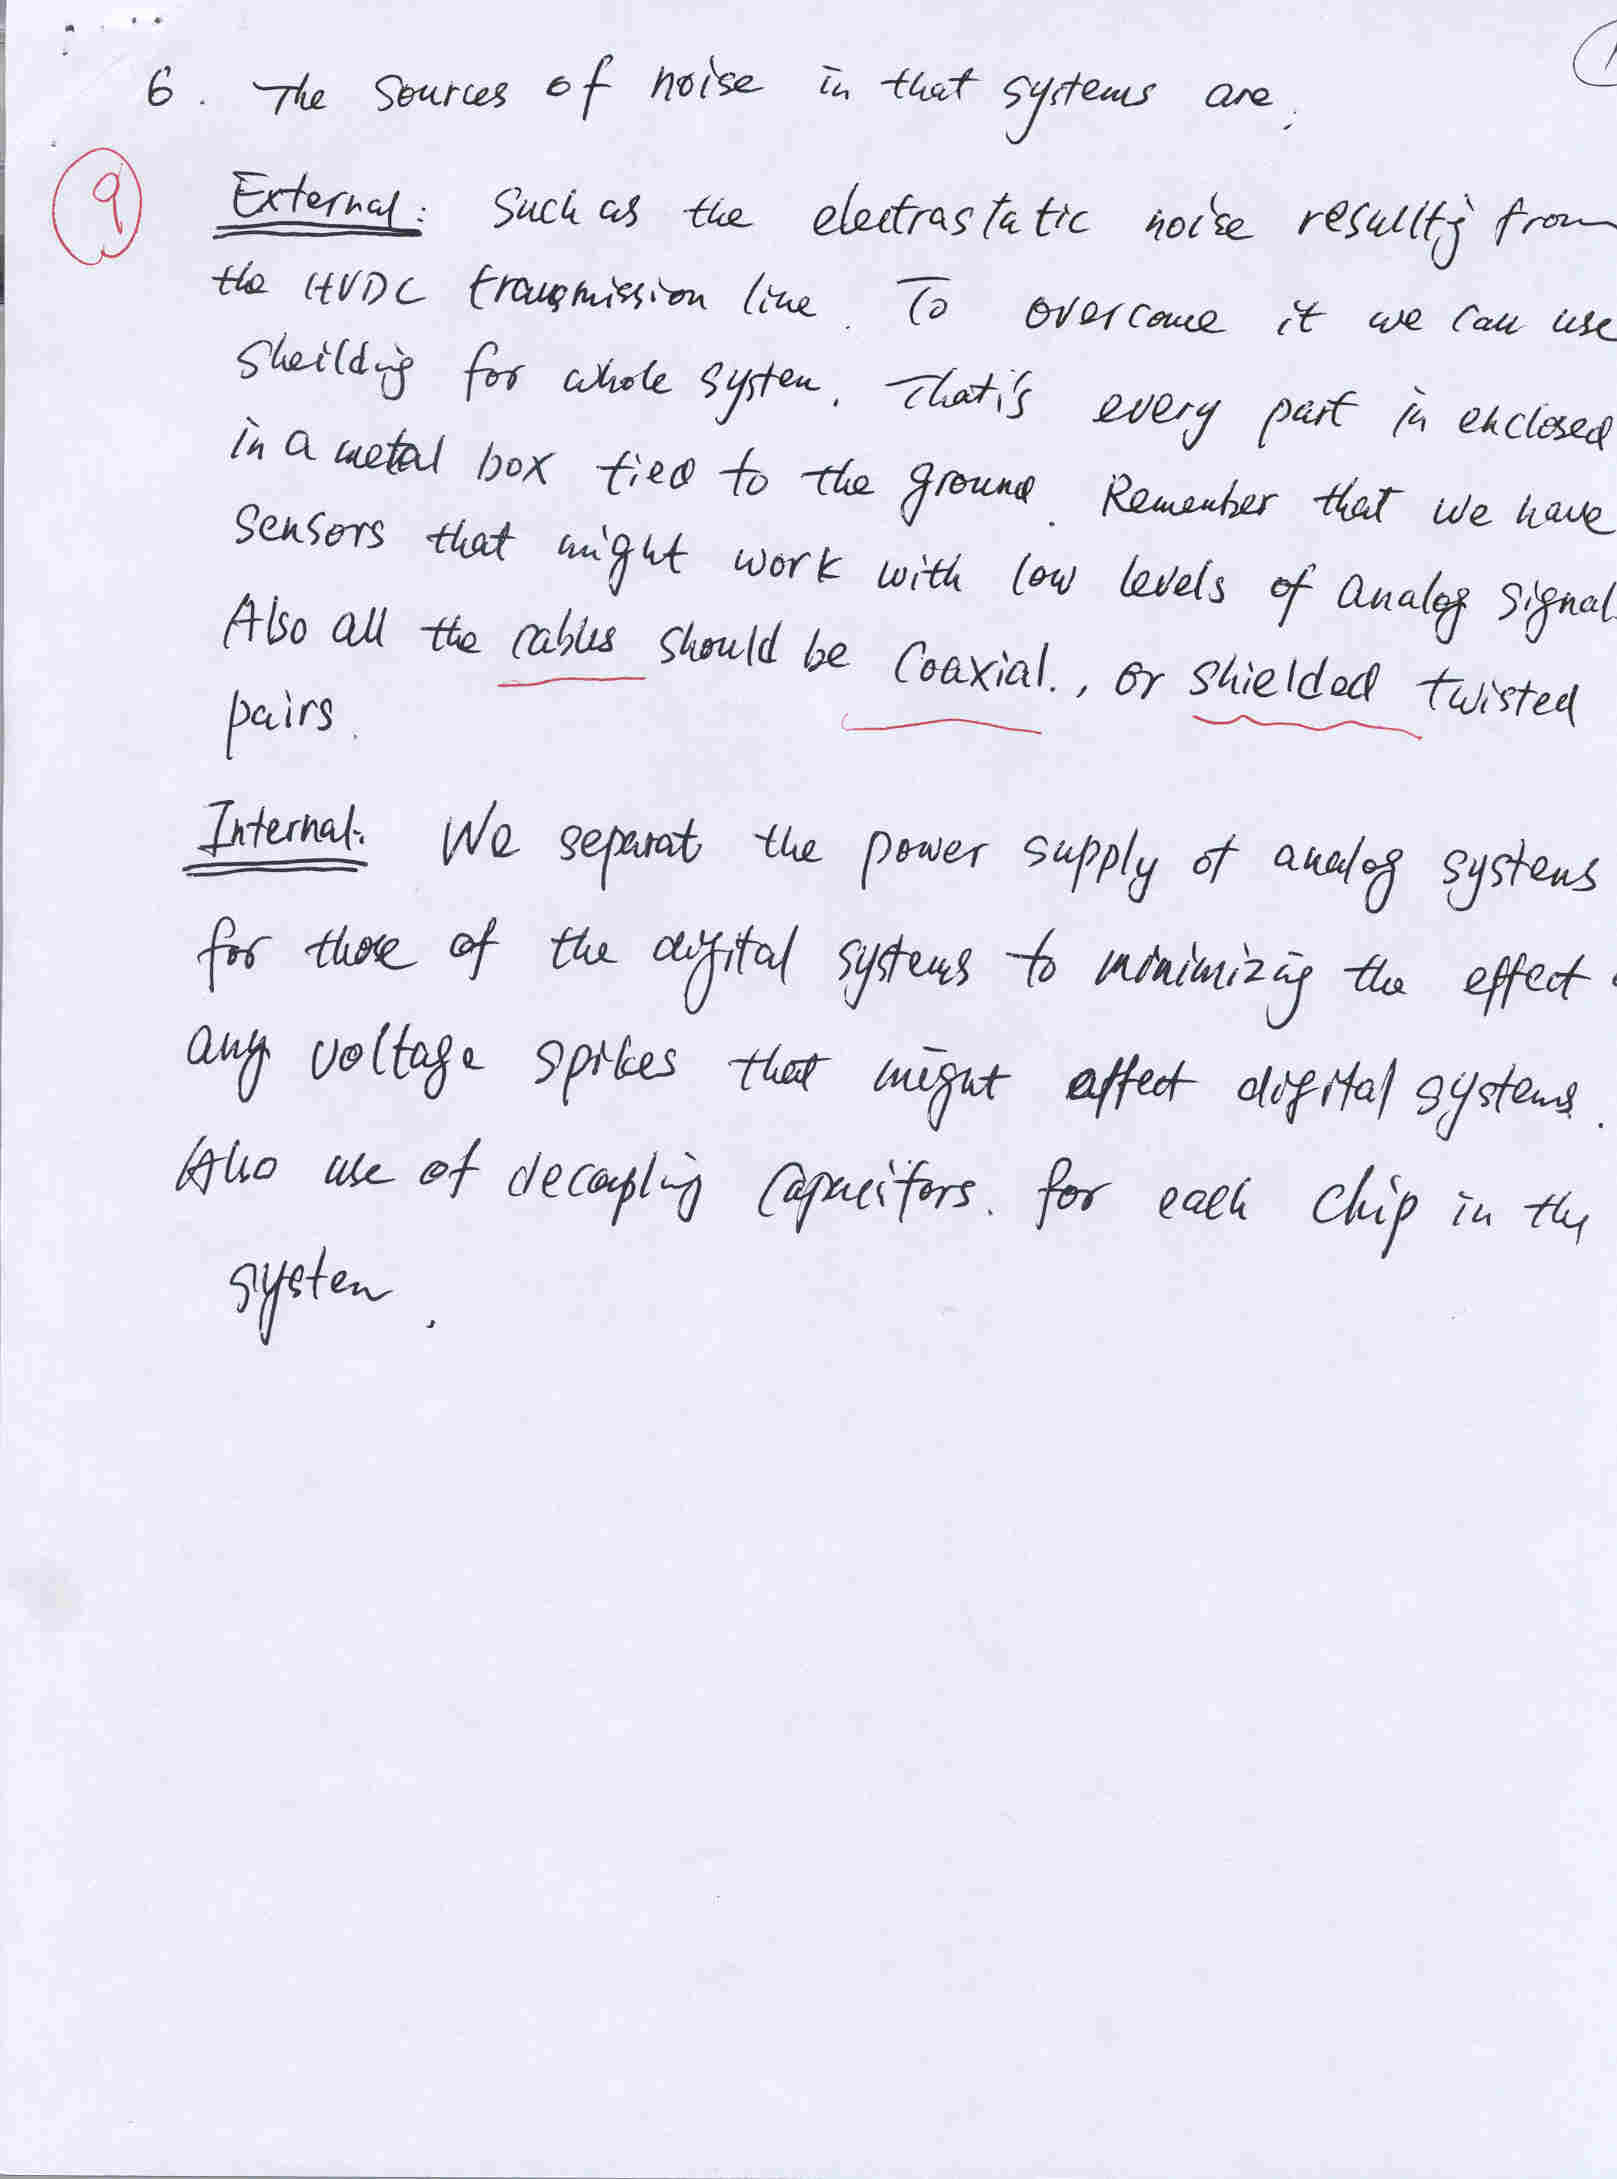 6. The Sources of noise in that systems are,
9
External: Such as the electrastatic noise resulltig from
the HVDC transmission line. To overcome it we can use
Sheilding for whole system. That's every part in enclosed
in a metal box tied to the ground. Remember that we have
sensors that might work with low levels of analog signal.
Also all the cables should be Coaxial., or shielded twisted
pairs.
Internal: We separat the power supply of analog systems
for those of the digital systems to minimizing the effect
any voltage spikes that might affect digital systems.
Also use of decoupling Capacitors. for each chip in the
system.